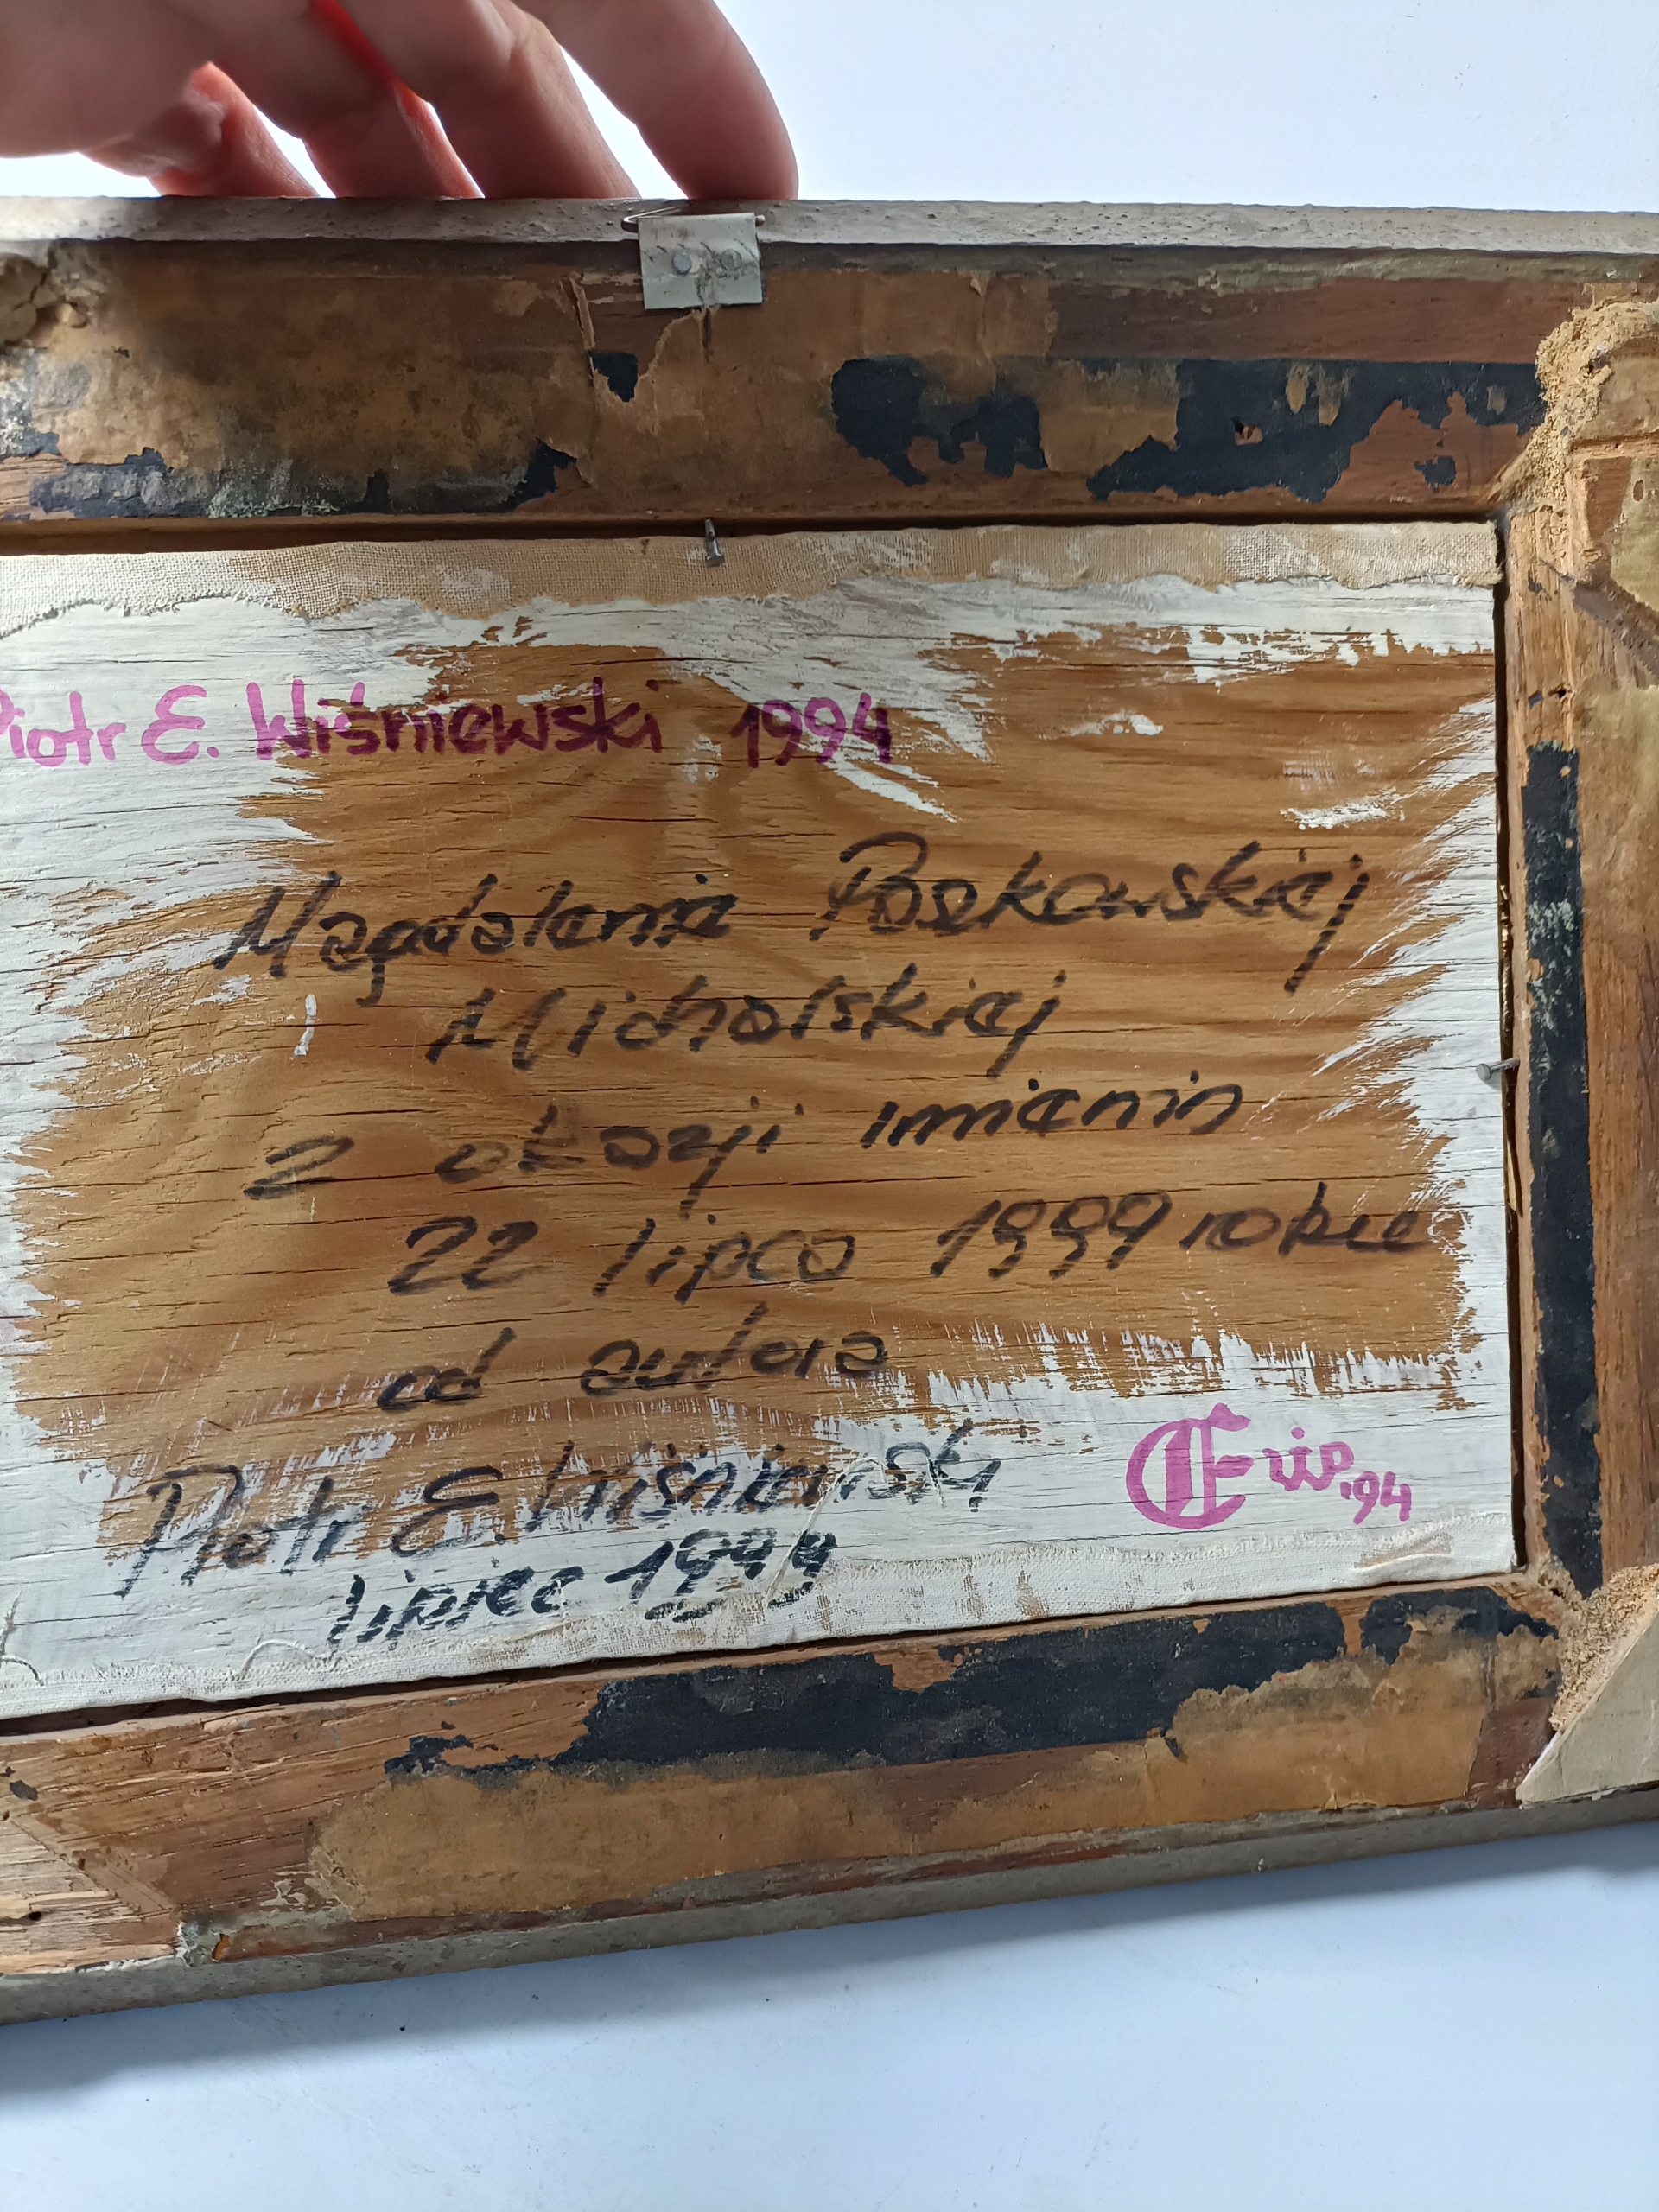 Piotr E. Wiśniewski 1994
Magdalenie
Michalskiej
z okazji imienin
22 lipca 1999 roku
od autora
Piotr E. Wiśniewski
lipiec 1999
94